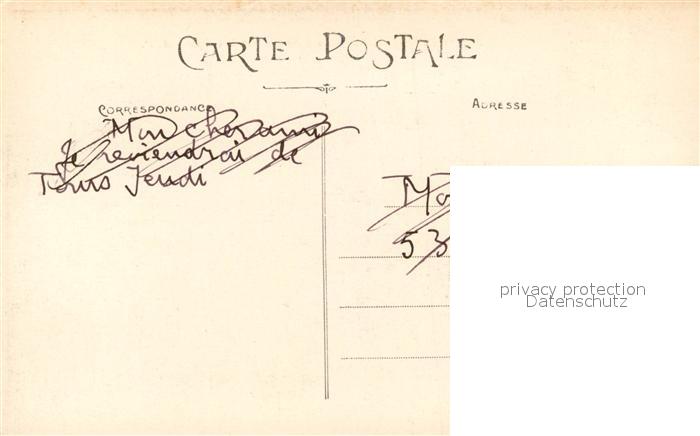 CARTE POSTALE
CORRESPONDANCE
ADRESSE
Mon cher ami
Je reviendrai de
Tours Jeudi
53
privacy protection
Datenschutz